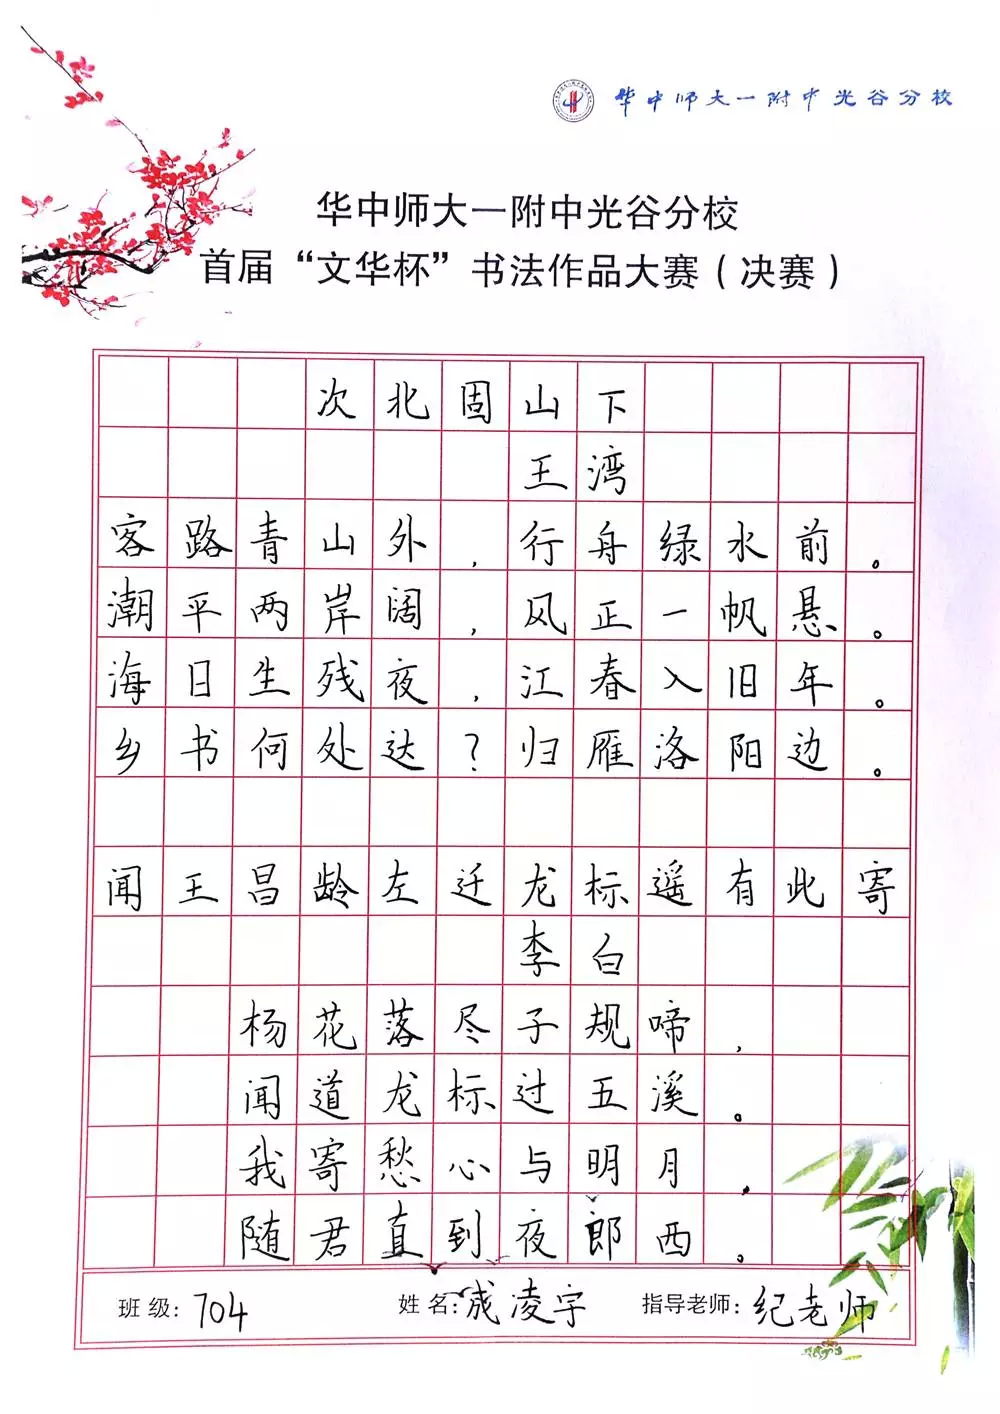 华中师大一附中光谷分校
华中师大一附中光谷分校
首届“文华杯”书法作品大赛（决赛）
次北固山下
王湾
客路青山外，行舟绿水前。
潮平两岸阔，风正一帆悬。
海日生残夜，江春入旧年。
乡书何处达？归雁洛阳边。
闻王昌龄左迁龙标遥有此寄
李白
杨花落尽子规啼，
闻道龙标过五溪。
我寄愁心与明月，
随君直到夜郎西。
班级：704 姓名：成凌宇 指导老师：纪老师